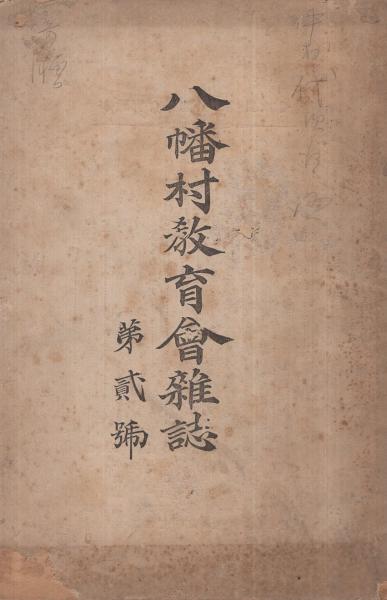 八幡村教育會雜誌
第貳號